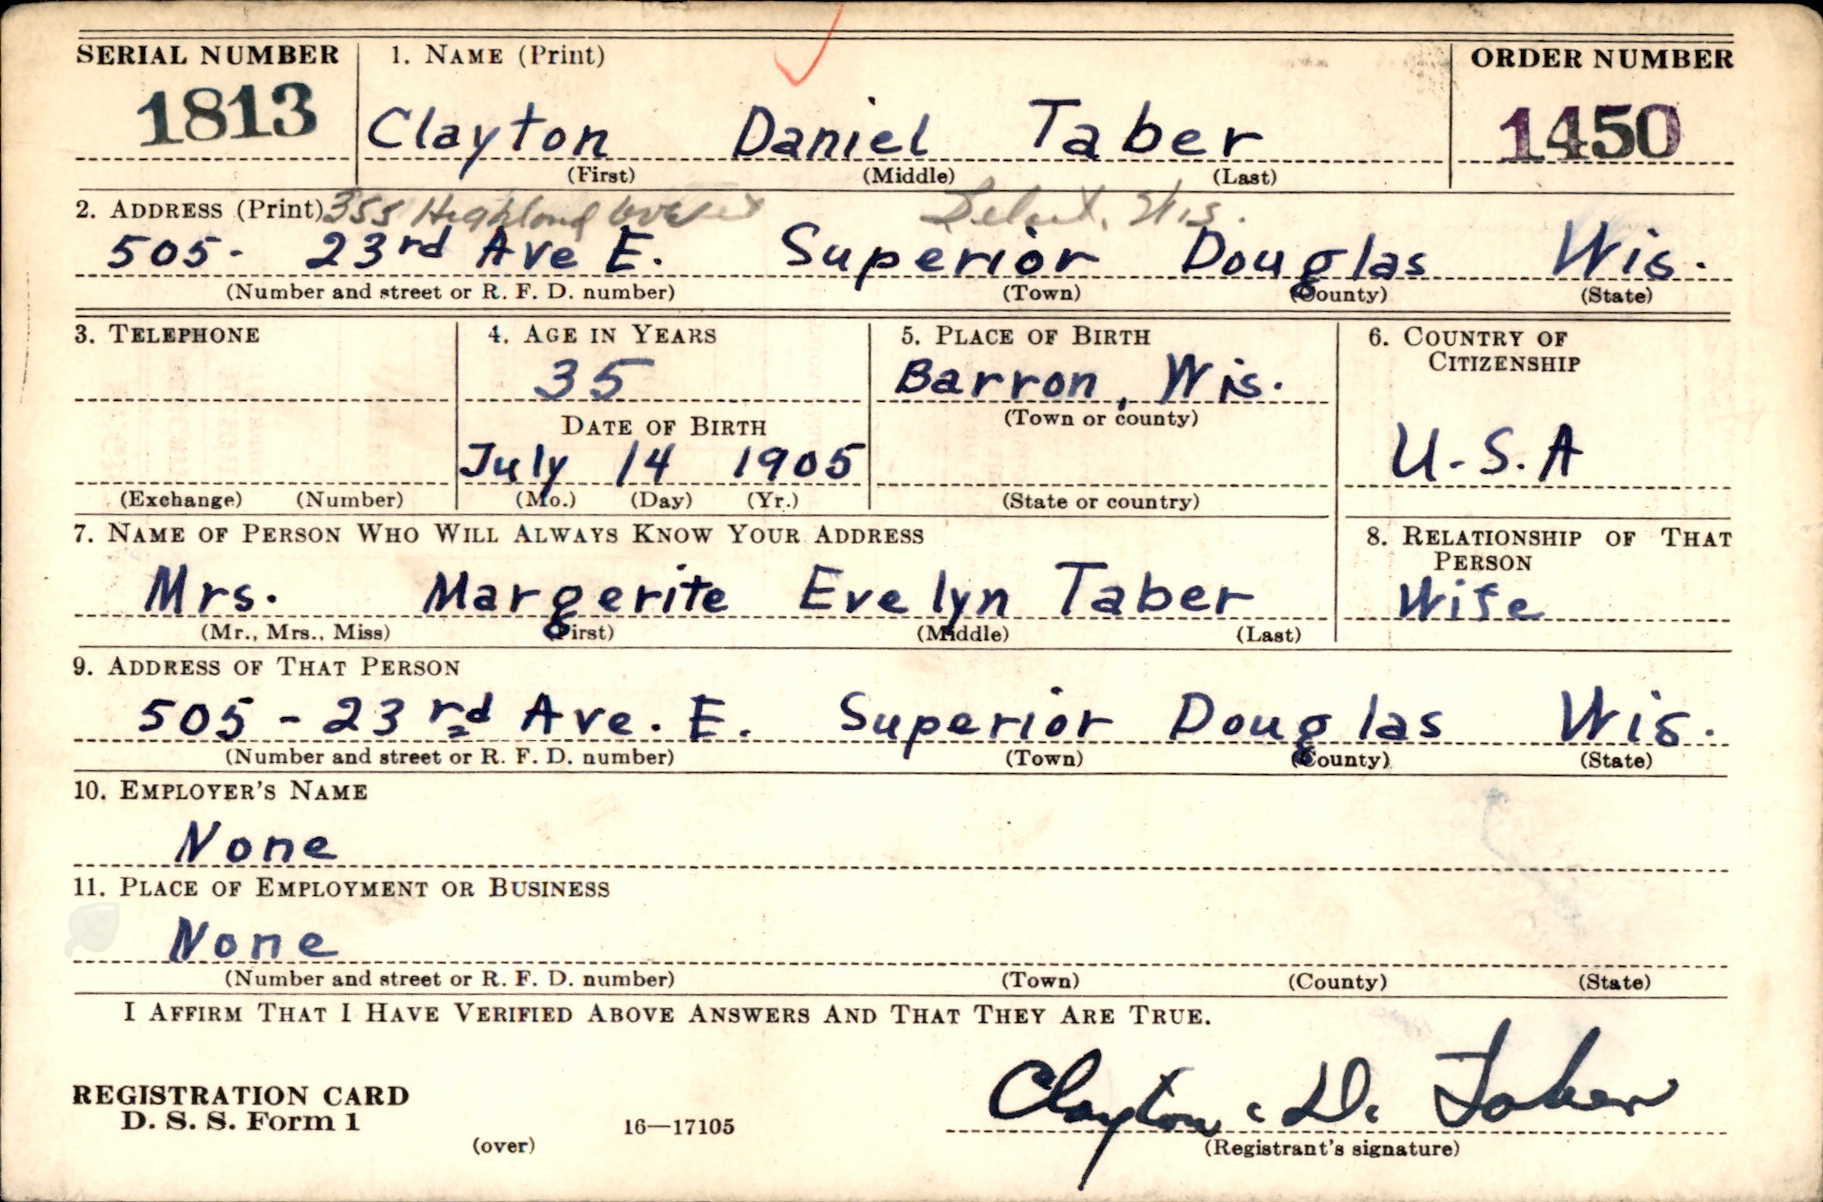 SERIAL NUMBER 1. NAME (Print) ORDER NUMBER
1813 Clayton Daniel Taber 1450
(First) (Middle) (Last)
2. ADDRESS (Print) 355 Highland Wis.
505- 23rd Ave E. Superior Douglas Wis.
(Number and street or R. F. D. number) (Town) (County) (State)
3. TELEPHONE 4. AGE IN YEARS 5. PLACE OF BIRTH 6. COUNTRY OF
CITIZENSHIP
35 Barron, Wis.
DATE OF BIRTH (Town or county)
July 14 1905 U.S.A
(Exchange) (Number) (Mo.) (Day) (Yr.) (State or country)
7. NAME OF PERSON WHO WILL ALWAYS KNOW YOUR ADDRESS 8. RELATIONSHIP OF THAT
PERSON
Mrs. Margerite Evelyn Taber Wife
(Mr., Mrs., Miss) (First) (Middle) (Last)
9. ADDRESS OF THAT PERSON
505 - 23rd Ave. E. Superior Douglas Wis.
(Number and street or R. F. D. number) (Town) (County) (State)
10. EMPLOYER'S NAME
None
11. PLACE OF EMPLOYMENT OR BUSINESS
None
(Number and street or R. F. D. number) (Town) (County) (State)
I AFFIRM THAT I HAVE VERIFIED ABOVE ANSWERS AND THAT THEY ARE TRUE.
Clayton D. Taber
REGISTRATION CARD
D. S. S. Form 1
(over) 16—17105 (Registrant's signature)